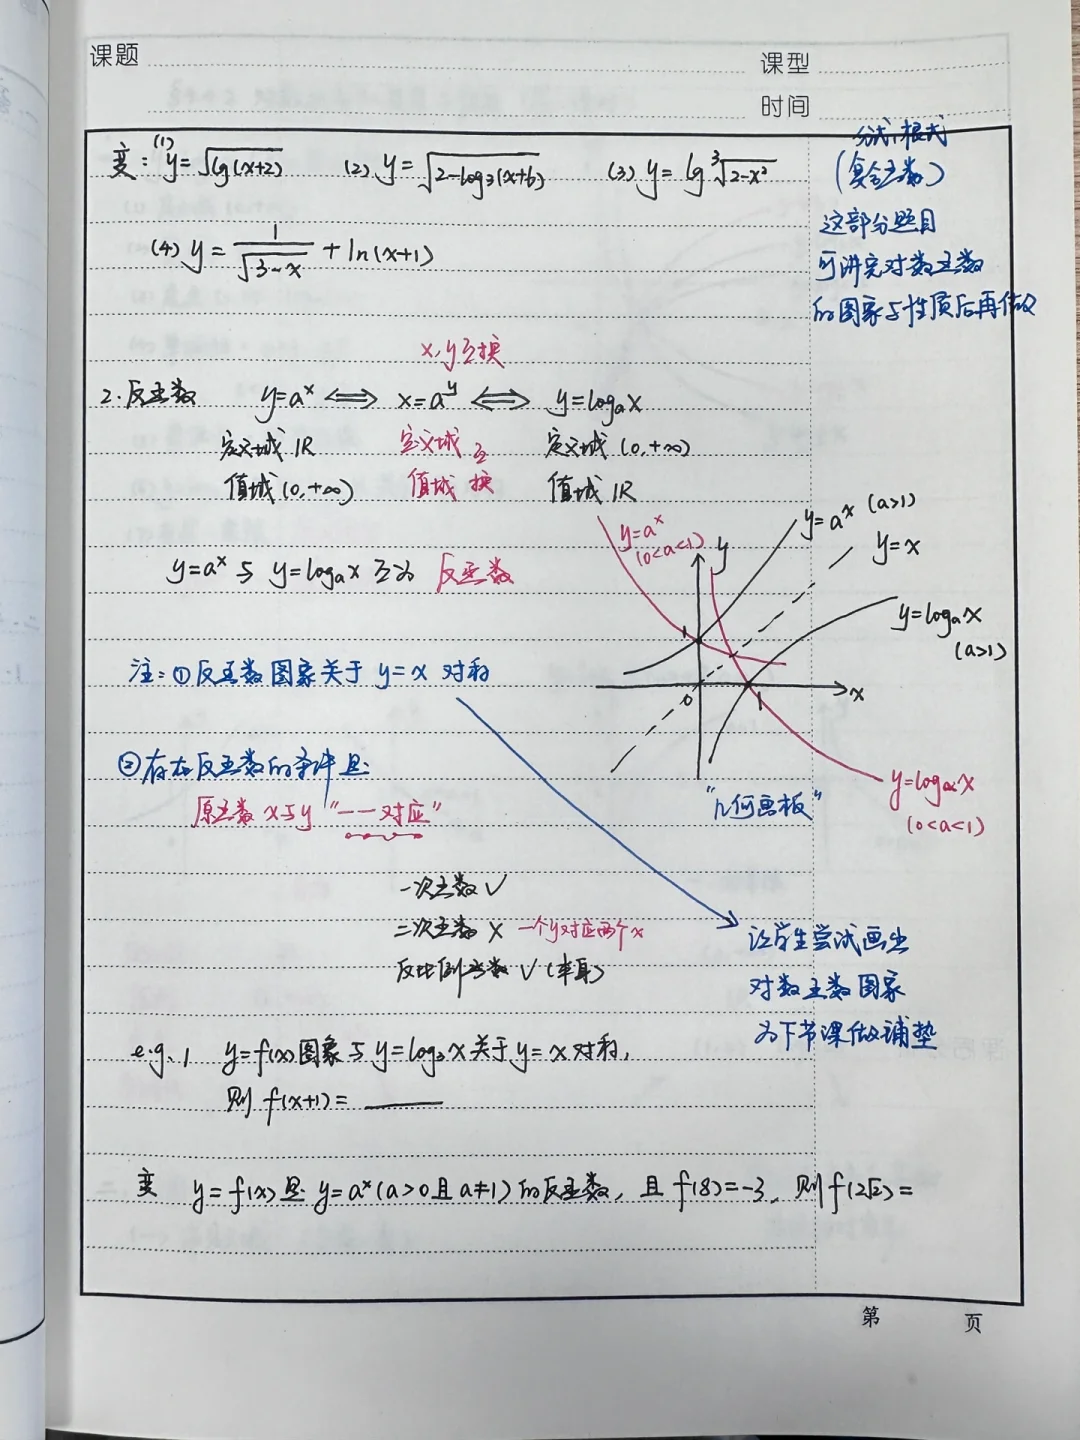 课题
课型
时间
变：(1) y=√lg(x+2) (2) y=√2-log₃(x+6) (3) y=lg ³√2-x²
(4) y=1/√3-x + ln(x+1)
分式,根式
(复合函数)
这部分题目
可讲完对数函数
的图象与性质后再做
x,y互换
2.反函数 y=aˣ ⟺ x=aʸ ⟺ y=logₐx
定义域 R 定义域 互 定义域 (0,+∞)
值域 (0,+∞) 值域 换 值域 R
y=aˣ 与 y=logₐx 互为 反函数
y=aˣ
(0<a<1)
y
y=aˣ (a>1)
y=x
y=logₐx
(a>1)
1
0
1
x
y=logₐx
(0<a<1)
"几何画板"
注：①反函数图象关于 y=x 对称
②存在反函数的条件是
原函数 x与y "一一对应"
一次函数 √
二次函数 × 一个y对应两个x
反比例函数 √ (本身)
让学生尝试画出
对数函数图象
为下节课做铺垫
e.g. 1 y=f(x)图象与 y=log₃x关于y=x对称,
则 f(x+1)= ____
变 y=f(x)是 y=aˣ(a>0且a≠1)的反函数, 且 f(8)=-3, 则f(2√2)=
第 页